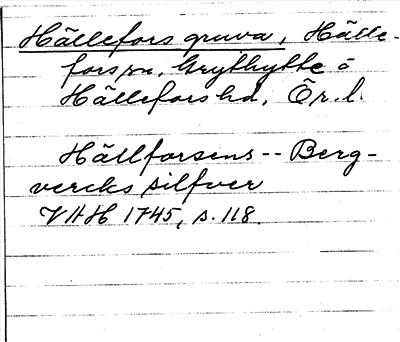 Hällefors gruva, Hälle-
fors sn, Grythytte o
Hällefors hd, Ör. l.
Hällforsens -- Berg-
vercks silfver
VAH 1745, s. 118.